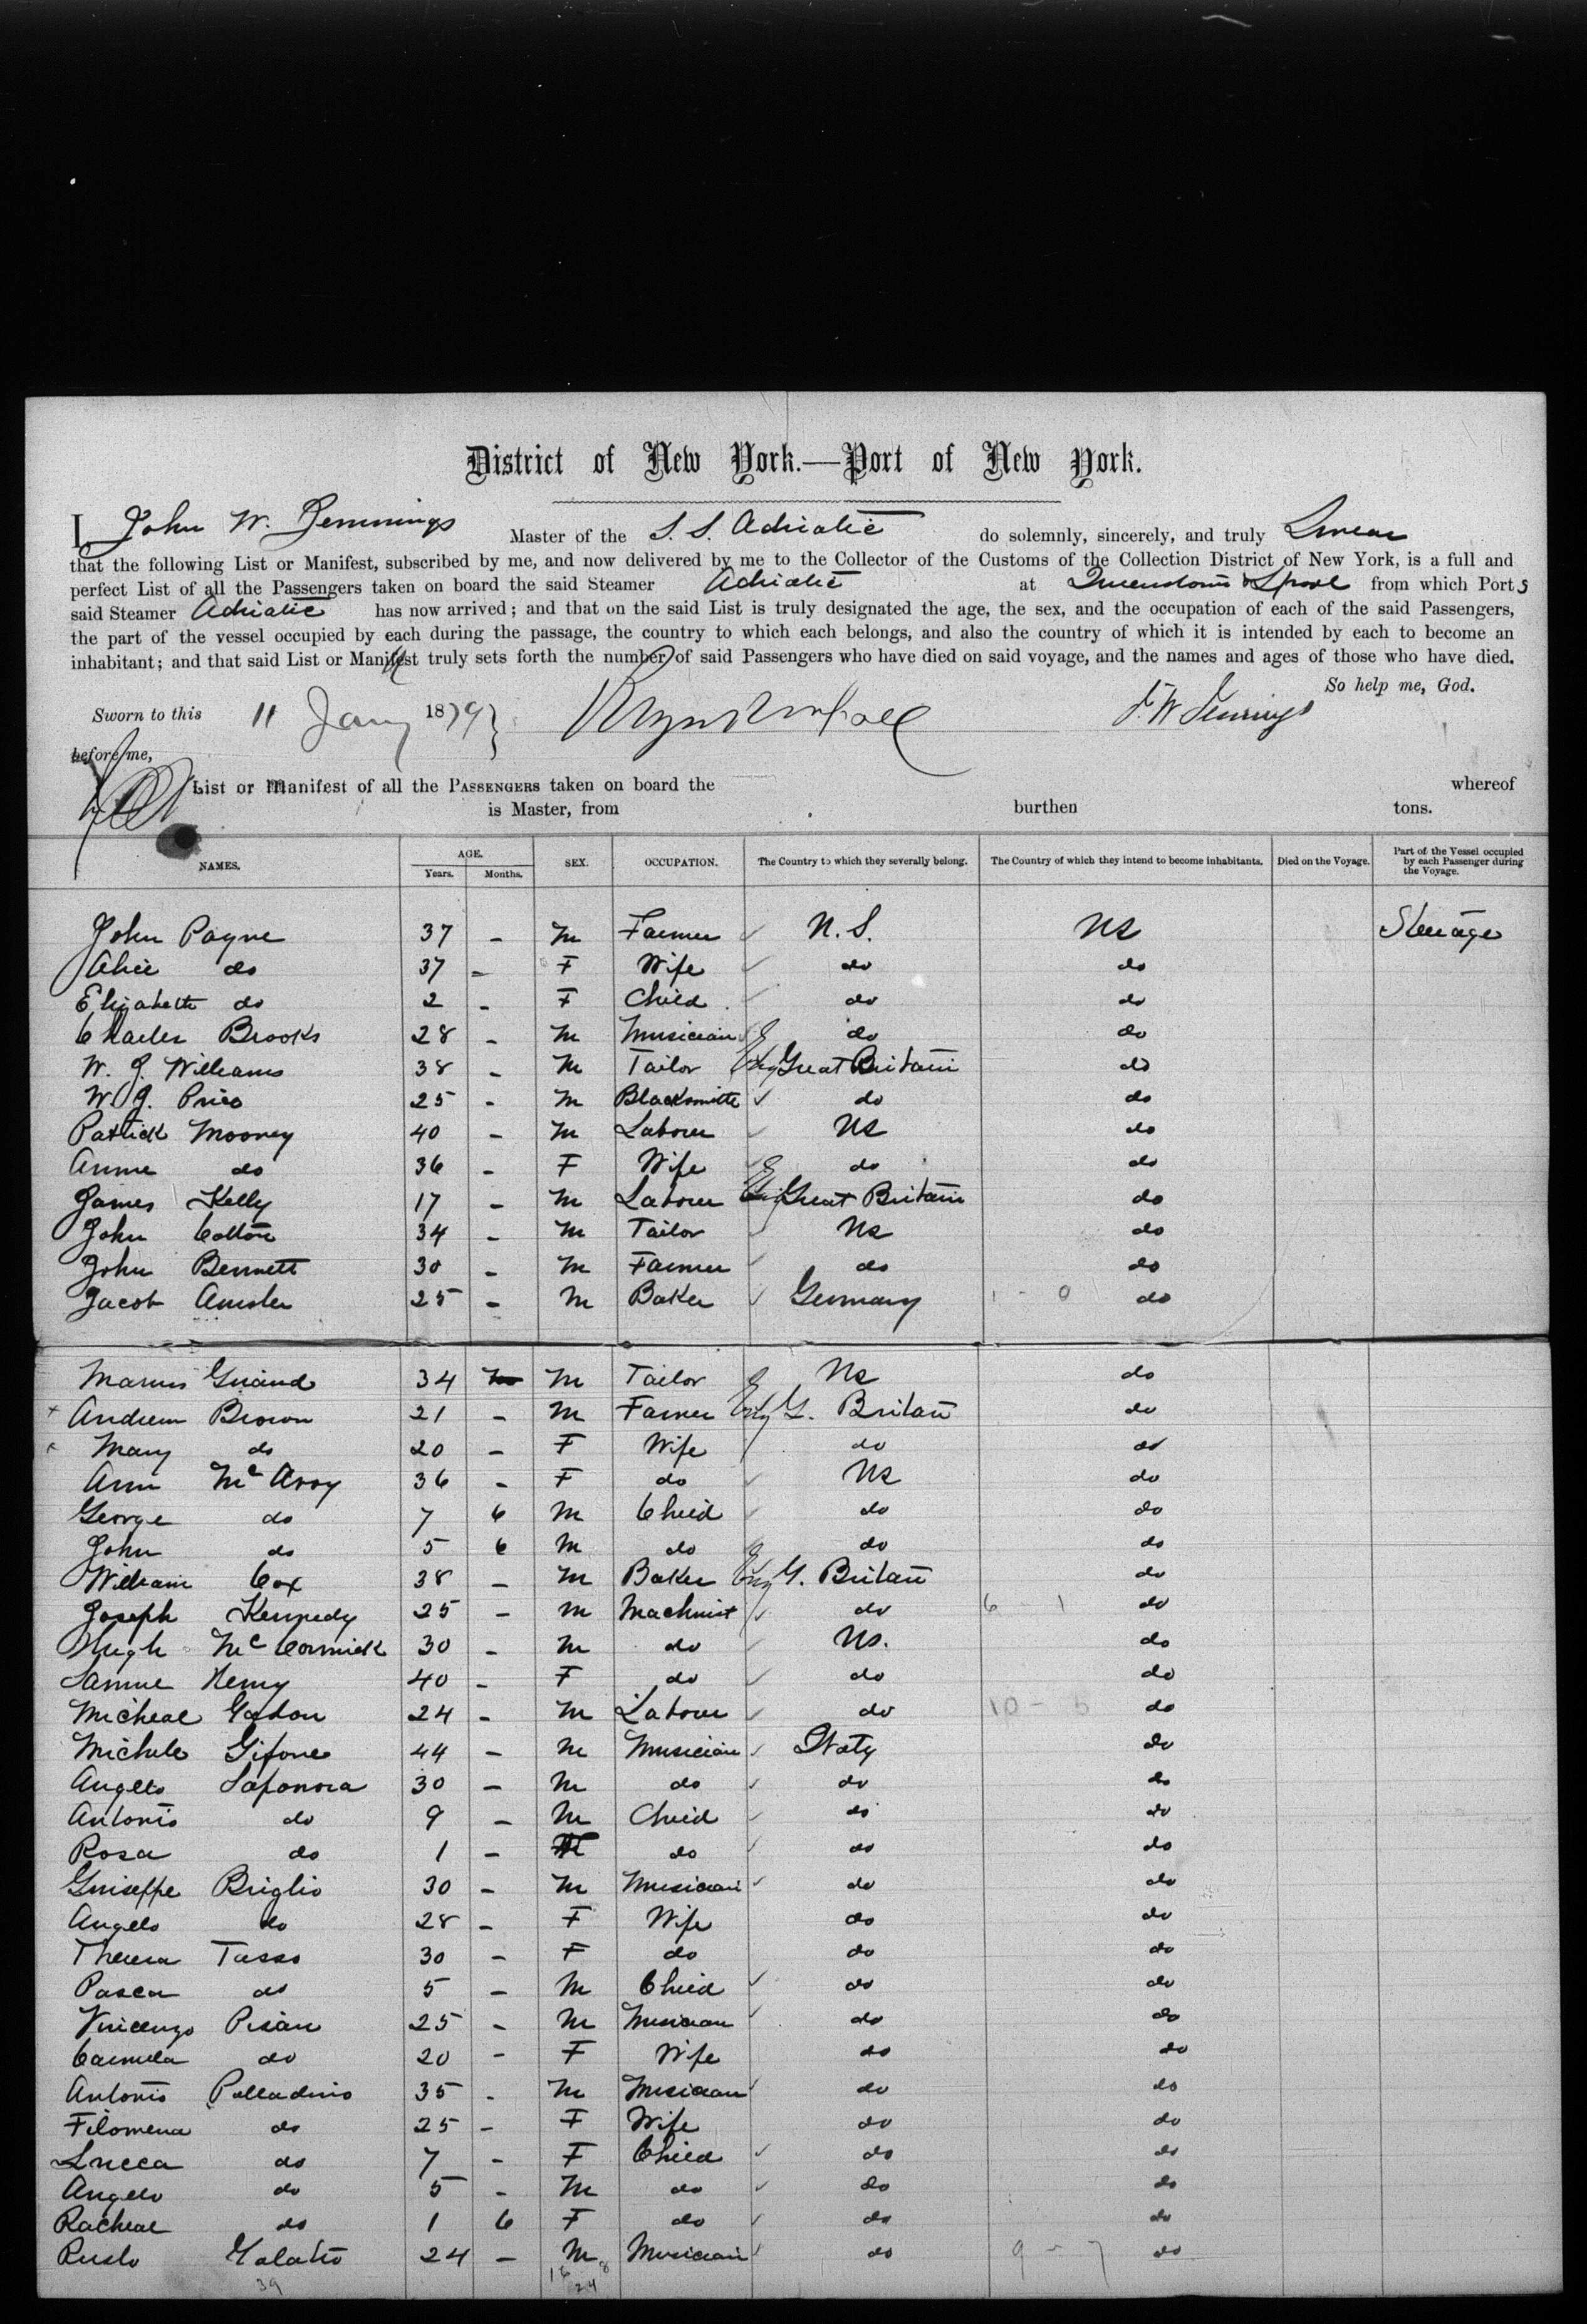 District of New York.—Port of New York.
I, John W. Jennings Master of the S. S. Adriatic do solemnly, sincerely, and truly Swear
that the following List or Manifest, subscribed by me, and now delivered by me to the Collector of the Customs of the Collection District of New York, is a full and
perfect List of all the Passengers taken on board the said Steamer Adriatic at Queenstown & Lpool from which Ports
said Steamer Adriatic has now arrived; and that on the said List is truly designated the age, the sex, and the occupation of each of the said Passengers,
the part of the vessel occupied by each during the passage, the country to which each belongs, and also the country of which it is intended by each to become an
inhabitant; and that said List or Manifest truly sets forth the number of said Passengers who have died on said voyage, and the names and ages of those who have died.
So help me, God.
Sworn to this 11 Jany 1879 J. W Jennings
before me,
List or Manifest of all the PASSENGERS taken on board the whereof
is Master, from burthen tons.
NAMES. AGE. Years. Months. SEX. OCCUPATION. The Country to which they severally belong. The Country of which they intend to become inhabitants. Died on the Voyage. Part of the Vessel occupied by each Passenger during the Voyage.
John Payne 37 - M Farmer U. S. US Steerage
Alice do 37 - F Wife do do
Elizabeth do 2 - F Child do do
Charles Brooks 28 - M Musician do do
W. J. Williams 38 - M Tailor Eng Great Britain do
W. J. Price 25 - M Blacksmith do do
Patrick Mooney 40 - M Labourer US do
Annie do 36 - F Wife do do
James Kelly 17 - M Labourer Eng Great Britain do
John Cotton 34 - M Tailor US do
John Bennett 30 - M Farmer do do
Jacob Amsler 25 - M Baker Germany 1 - 0 do
Marcus 34 M Tailor US do
+ Andrew Brown 21 - M Farmer Eng G. Britain do
Mary do 20 - F Wife do do
Ann McAvoy 36 - F do US do
George do 7 6 M Child do do
John do 5 6 M do do do
William Cox 38 - M Baker Eng G. Britain do
Joseph Kennedy 25 - M Machinist do 6 - 1 do
Hugh McCormick 30 - M do US. do
Henry 40 - F do do do
Micheal 24 - M Labourer do 10 - 5 do
Michele Gifone 44 - M Musician Italy do
Angelo Saponora 30 - M do do do
Antonio do 9 - M Child do do
Rosa do 1 - do do do
Guiseppe Briglio 30 - M Musician do do
Angelo do 28 - F Wife do do
Theresa Tasso 30 - F do do do
Pasca do 5 - M Child do do
Vincenzo Pisani 25 - M Musician do do
Carmela do 20 - F Wife do do
Antonio Palladino 35 - M Musician do do
Filomena do 25 - F Wife do do
Lucca do 7 - F Child do do
Angelo do 5 - M do do do
Racheal do 1 6 F do do do
Galatro 24 - M Musician do 9 - 7 do
39 16 8
24